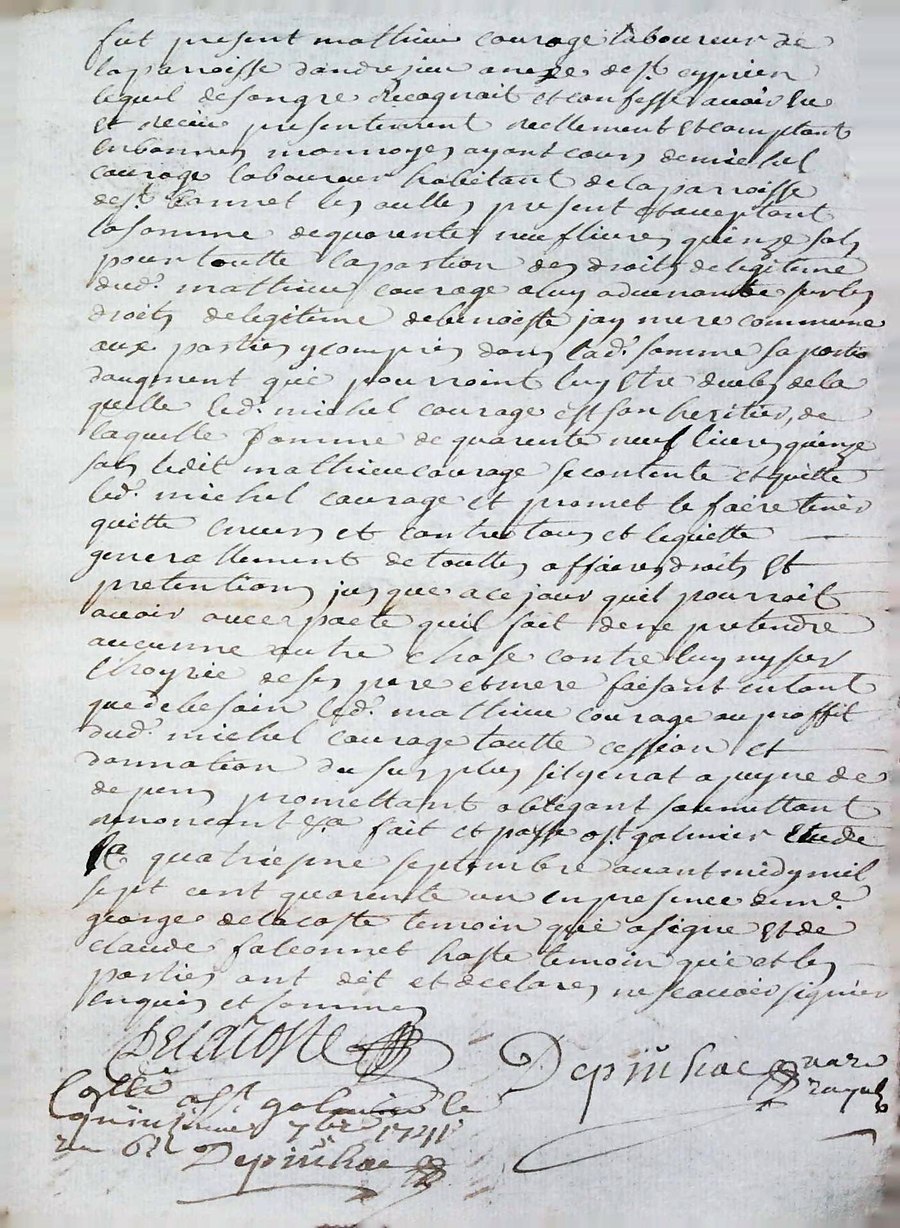 fut present mathieu courage laboureur de
la parroisse dandrezieu anexe de st cyprien
lequel de son gre recognait et confesse avoir eu
et receu presentement reellement et comptant
en bonnes monnoyes ayant cours de michel
courage laboureur habitant de la parroisse
de st bonnet les oulles present et acceptant
la somme de quarente neuf livres quinze sols
pour toutte la portion des droits de legitime
dud. mathieu courage a luy advenante sur les
droits de legitime de benoiste jay mere commune
aux parties y compris dans lad. somme sa portio
daugment que pourroint luy estre dues de la
quelle led. michel courage est son heritier, de
laquelle somme de quarente neuf livres quinze
sols ledit mathieu courage se contente et quitte
led. michel courage et promet le faire tenir
quitte envers et contre tous et le quitte
generallement de touttes affaires droits et
pretentions jusques a ce jour quil pourroit
avoir avec pacte quil fait de ne pretendre
aucunne autre chose contre luy ny sur
lhoyrie de ses pere et mere faisant en tant
que de besoin led. mathieu courage au proffit
dud. michel courage toutte cession et
donnation du surplus sil y en at a peyne de
depens promettant obligeant soumettant
renoncant &a fait et passe a st galmier etude
le quatriesme septembre avant midy mil
sept cent quarente un en presence de mr.
george delacoste temoin que a signe et de
claude falconnet hoste temoin que et les
parties ont dit et declares ne scavoir signier
enquis et sommes
Delacoste
Depinhac
Collé a st galmier le
quinsieme 7bre 1741
Depinhac